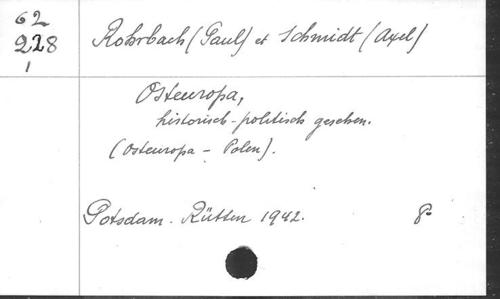 62
228
1
Rohrbach (Paul) et Schmidt (Axel)
Osteuropa,
historisch-politisch gesehen.
(Osteuropa - Polen).
Potsdam. Rütten 1942. 8°